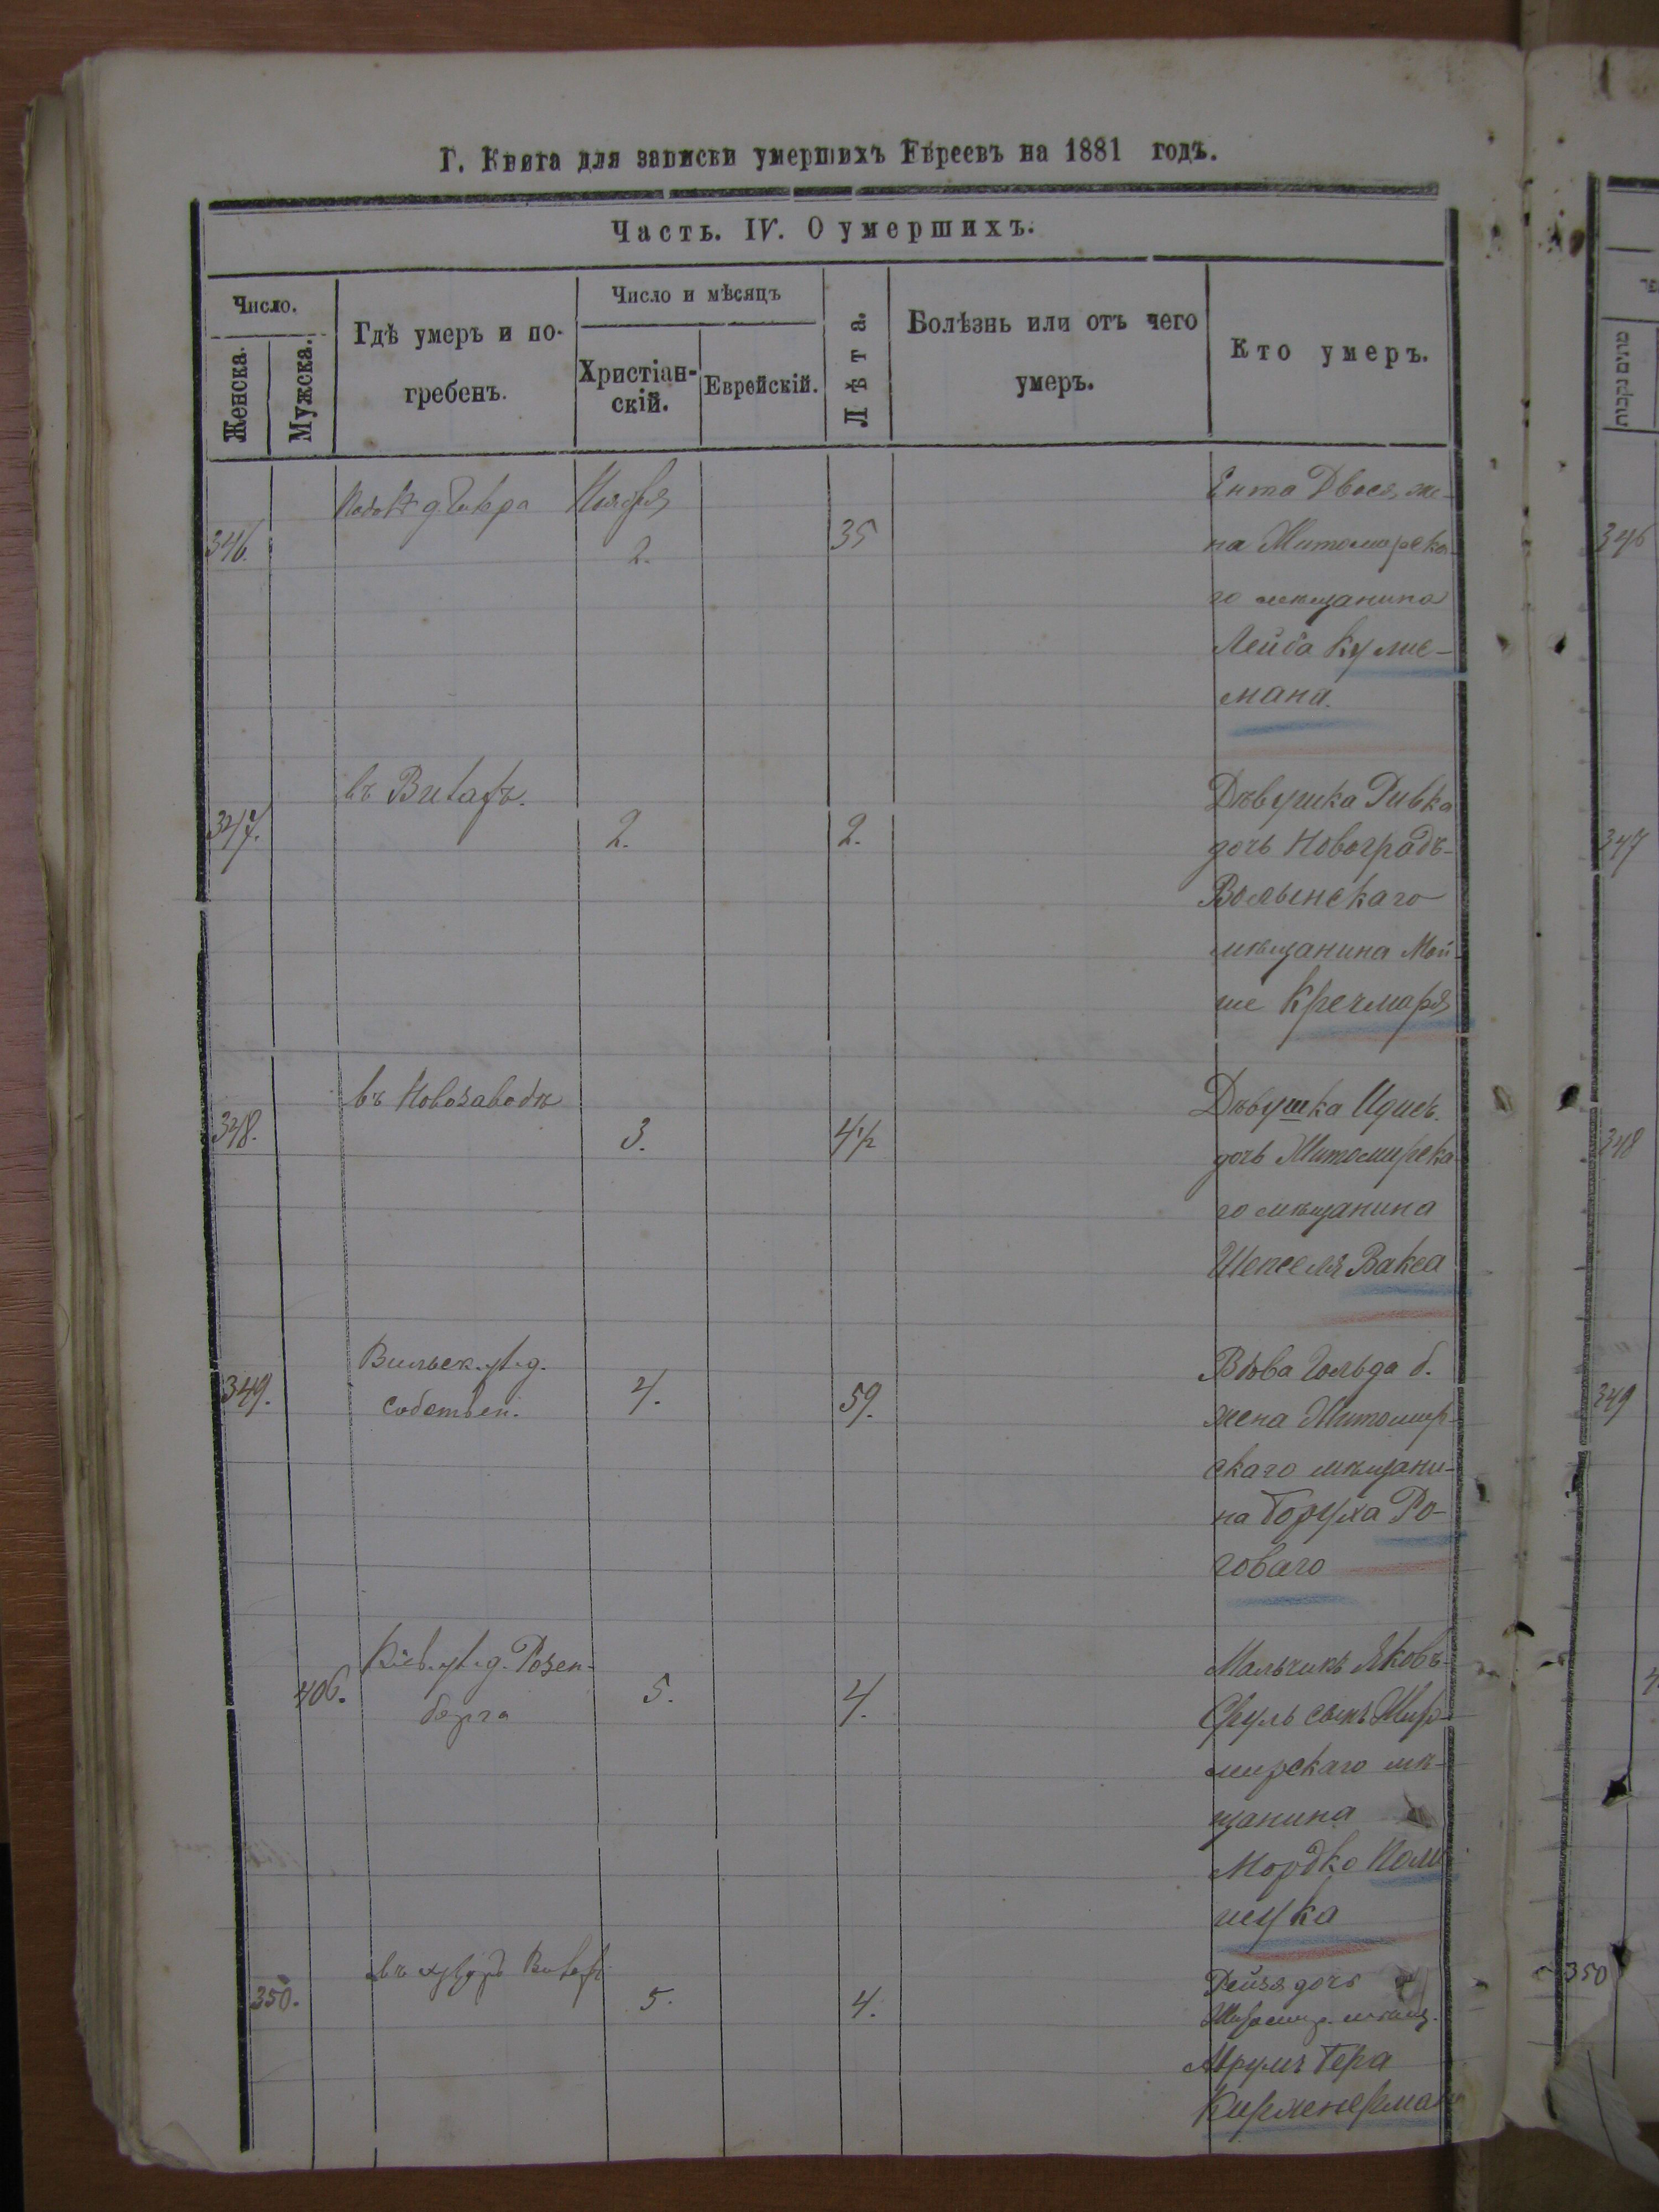 Г. Книга для записки умершихъ Евреевъ на 1881 годъ.
Часть. IV. О умершихъ.
Число.
Женска.
Мужска.
Гдѣ умеръ и по-
гребенъ.
Число и мѣсяцъ
Христіан-
скій.
Еврейскій.
Лѣта.
Болѣзнь или отъ чего
умеръ.
Кто умеръ.
מתים נקבות
346.
Ноября
2.
35
Ента Двося, же-
на Житомирска-
го мѣщанина
Лейба
мана.
346
347.
въ
2.
2.
Дѣвушка Ривка
дочь Новоградъ-
Волынскаго
мѣщанина Мой-
ше Кречмаря
347
348.
въ Новозаводѣ
3.
4 1/2
Дѣвушка
дочь Житомирска-
го мѣщанина
Шепселя Вакса
348
349.
Вильск. ул. д.
собствен.
4.
59.
Вдова Гольда б.
жена Житомир-
скаго мѣщани-
на Боруха Ро-
говаго
349
406.
Кіев. ул. д. Розен-
берга
5.
4.
Мальчикъ Яковъ-
Сруль сынъ Жито-
мирскаго мѣ-
щанина
Мордко Поли-
щука
350.
5.
4.
Рейзя дочь
Житомир. мѣщ.
Аврумъ Бера
350